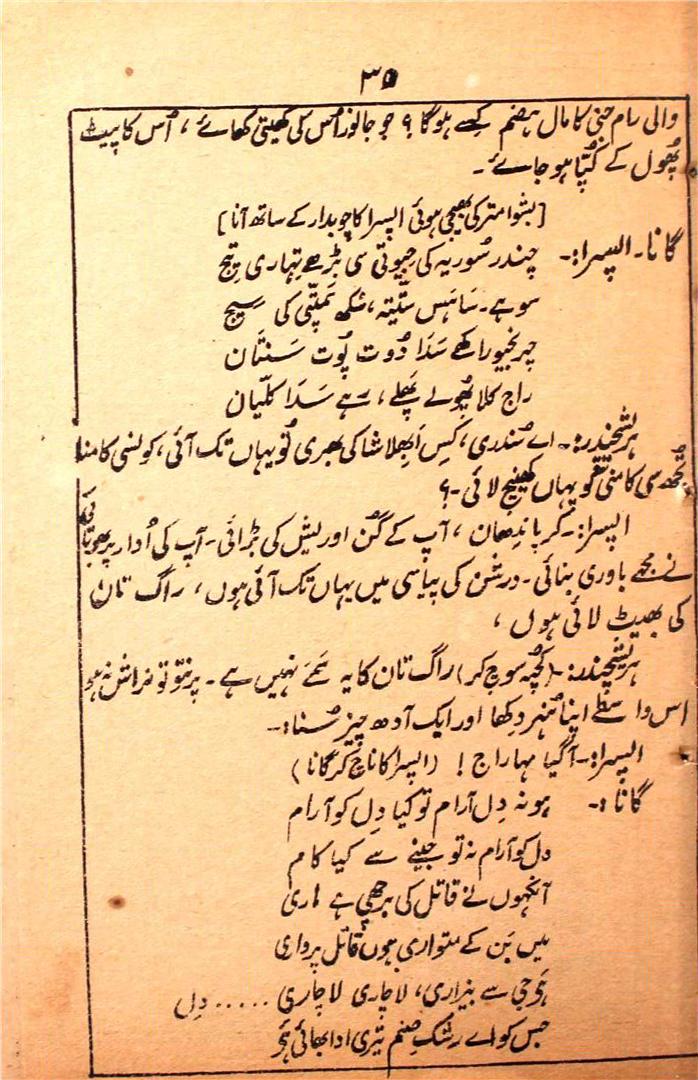 ۳۵
والی رام جنی کا مال ہضم کیسے ہوگا؟ جو جانور اُس کی کھیتی کھائے، اُس کا پیٹ
پھُول کے کُپّا ہو جائے۔
[بشوامتر کی بھیجی ہوئی اپسرا کا چوبدار کے ساتھ آنا]
گانا۔ اپسرا:۔ چندر سُوریہ کی جیوتی سی بڑھے تِہاری تیج
سوہے۔ ساہس ستّیتہ، سُکھ سَمپتّی کی سیج
چرنجیو راکھے سَدَا دُوت پُوت سَنتَان
راج کلا پھُولے پَھلے، رہے سَدَا کلیّان
ہریشچندر:۔ اے سُندری، کَس اَبھلاشا کی بھری تُو یہاں تک آئی، کونسی کامنا
تُجھ سی کامنی کو یہاں کھینچ لائی۔؟
اپسرا:۔ کرپاندھان، آپ کے گُن اور یش کی بَڑائی۔ آپ کی اُدار پربھوتائی
نے مجھے باوری بنائی۔ درشن کی پیاسی میں یہاں تک آئی ہوں، راگ تان
کی بھینٹ لائی ہوں،
ہریشچندر:۔ (کچُھ سوچ کر) راگ تان کا یہ سَمَے نہیں ہے۔ پرنتو تو نراش نہ ہو
اس واسطے اپنا ہُنر دِکھا اور ایک آدھ چیز سُنا:۔
اپسرا:۔ آگیا مہاراج! (اپسرا کا ناچ کر گانا)
گانا:۔ ہو نہ دِل آرام تو کیا دِل کو آرام
دل کو آرام نہ تو جینے سے کیا کام
آنکھوں نے قاتل کی برچھی ہے ماری
میں بَن کے متواری ہوں قاتل پر واری
ہُو جی سے بیزاری، لاچاری لاچاری ..... دِل
جس کو اے رشکِ صنم تیری ادا بھائی ہُو